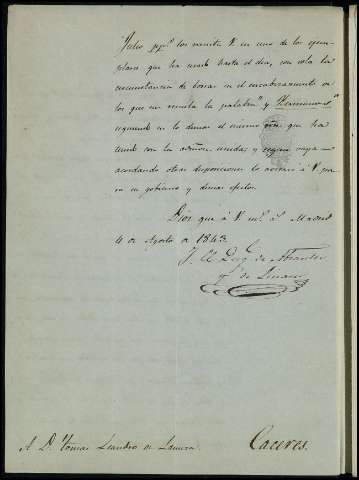 Julio pp.º los remita V. en uno de los ejem-
plares que ha usado hasta el dia, con sola la
circunstancia de borrar en el encabezamiento de
los que me remita la palabra "y Hermanos"
siguiendo en lo demas el mismo que ha
tenido con la
acordando otras disposiciones lo avisaré á V. pa-
ra su gobierno y demas efectos.
Dios gue á V. m.s a.s Madrid
4 de Agosto de 1843.
J. El Duq. de Abrantes
y de Linares
A D. Tomas Leandro de
Caceres.